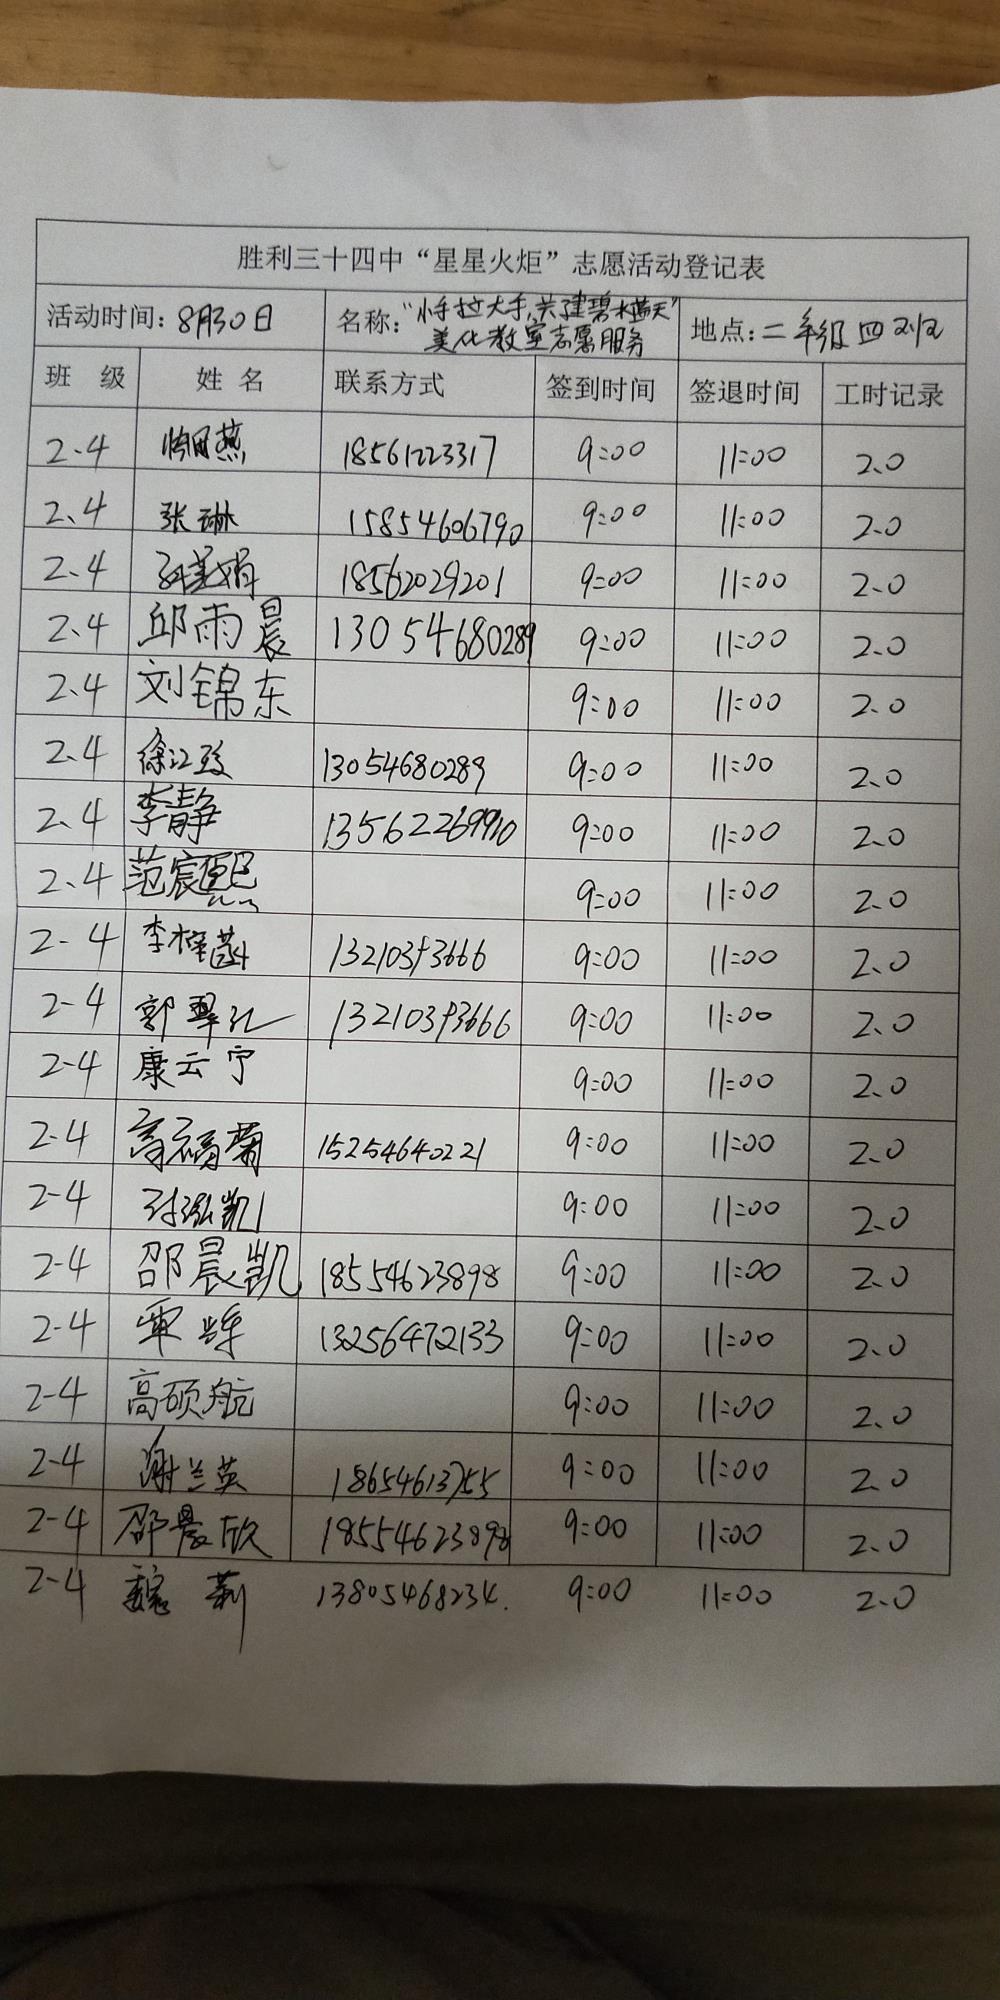 胜利三十四中“星星火炬”志愿活动登记表
活动时间：8月30日 名称：“小手拉大手，共建碧水蓝天” 美化教室志愿服务 地点：二年级四
班 级 姓 名 联系方式 签到时间 签退时间 工时记录
2.4 燕 18561223317 9:00 11:00 2.0
2、4 张琳 15854606790 9:00 11:00 2.0
2.4 孙美娟 18562029201 9:00 11:00 2.0
2.4 邱雨晨 13054680289 9:00 11:00 2.0
2.4 刘锦东 9:00 11:00 2.0
2.4 徐江玲 13054680289 9:00 11:00 2.0
2.4 李静 13562269910 9:00 11:00 2.0
2.4 范宸熙 9:00 11:00 2.0
2-4 李梓菡 9:00 11:00 2.0
2-4 郭翠红 9:00 11:00 2.0
2-4 康云宁 9:00 11:00 2.0
2-4 高福菊 15254640221 9:00 11:00 2.0
2-4 泓凯 9:00 11:00 2.0
2-4 邵晨凯 18554623898 9:00 11:00 2.0
2-4 13256472133 9:00 11:00 2.0
2-4 高硕航 9:00 11:00 2.0
2-4 谢兰英 18654613755 9:00 11:00 2.0
2-4 邵晨欣 18554623898 9:00 11:00 2.0
2-4 魏莉 13805468234. 9:00 11:00 2.0